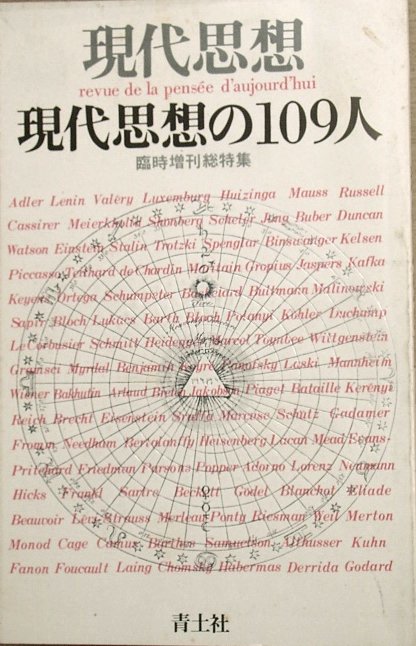 現代思想
revue de la pensée d'aujourd'hui
現代思想の109人
臨時増刊総特集
Adler Lenin Valéry Luxemburg Huizinga Mauss Russell
Cassirer Meierkholid Shonberg Scheler Jung Buber Duncan
Watson Einstein Stalin Trotzki Spenglar Binswanger Kelsen
Piccasso Teilhard de Chardin Maritain Gropius Jaspers Kafka
Keynes Ortega Schumpeter Bachelard Bultmann Malinowski
Sapir Bloch/Lukacs Barth Bloch Polanyi Köhler Duchamp
Le Corbusier Schmitt Heidegger Marcel Toynbee Wittgenstein
Gramsci Myrdal Benjamin Koyré Panofsky Laski Mannheim
Wiener Bakhutin Artaud Breton Jakobson Piaget Bataille Kerényi
Reich Brecht Eisenstein Sraffa Marcuse/Schutz Gadamer
Fromm Needham Bertalanffy Heisenberg Lacan Mead/Evans-
Pritchard Friedman Parsons Popper Adorno Lorenz Neumann
Hicks Frankl Sartre Beckett Gödel Blanchot Eliade
Beauvoir Lévi-Strauss Merleau-Ponty Riesman Weil Merton
Monod Cage Camus Barthes Samuelson Althusser Kuhn
Fanon Foucault Laing Chomsky Habermas Derrida Godard
青土社